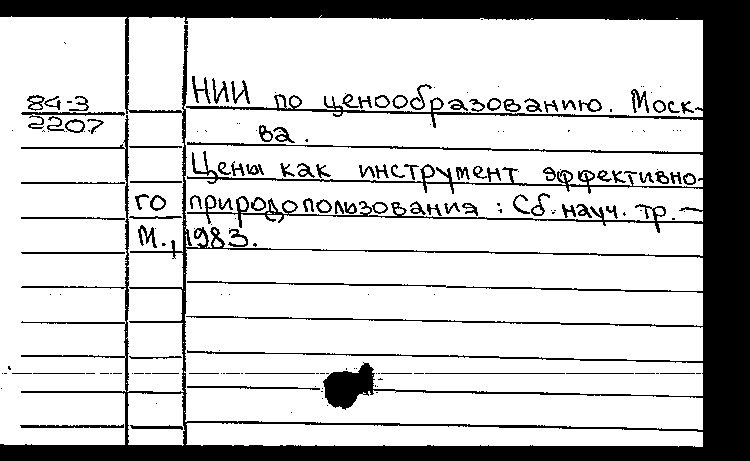 84-3
2207
НИИ по ценообразованию. Моск-
ва.
Цены как инструмент эффективно-
го природопользования : Сб. науч. тр. —
М., 1983.